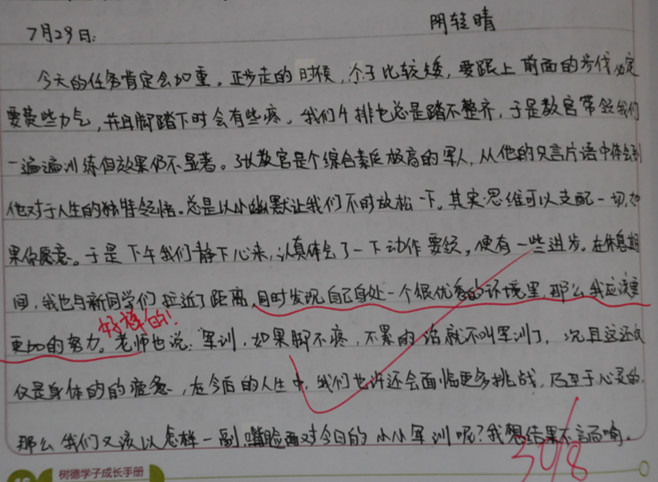 7月29日: 阴转晴
今天的任务肯定会加重。正步走的时候,个子比较矮,要跟上前面的步伐必定
要费些力气,并且脚踏下时会有些疼。我们4排也总是踏不整齐,于是教官带领我们
一遍遍训练但效果仍不显著。张教官是个综合素质极高的军人,从他的只言片语中体会到
他对于人生的独特领悟。总是以小幽默让我们不时放松一下。其实思维可以支配一切,如
果你愿意。于是下午我们静下心来,认真体会了一下动作要领,便有一些进步。在休息期
间,我也与新同学们拉近了距离,同时发现自己身处一个很优秀的环境里,那么我应该要
好样的!
更加的努力。老师也说:军训,如果脚不疼,不累的话就不叫军训了,况且这还只
仅是身体的的疲惫,在今后的人生中,我们也许还会面临更多挑战,乃至于心灵的,
那么我们又该以怎样一副嘴脸面对今日的小小军训呢?我想结果不言而喻。
30/8
树德学子成长手册